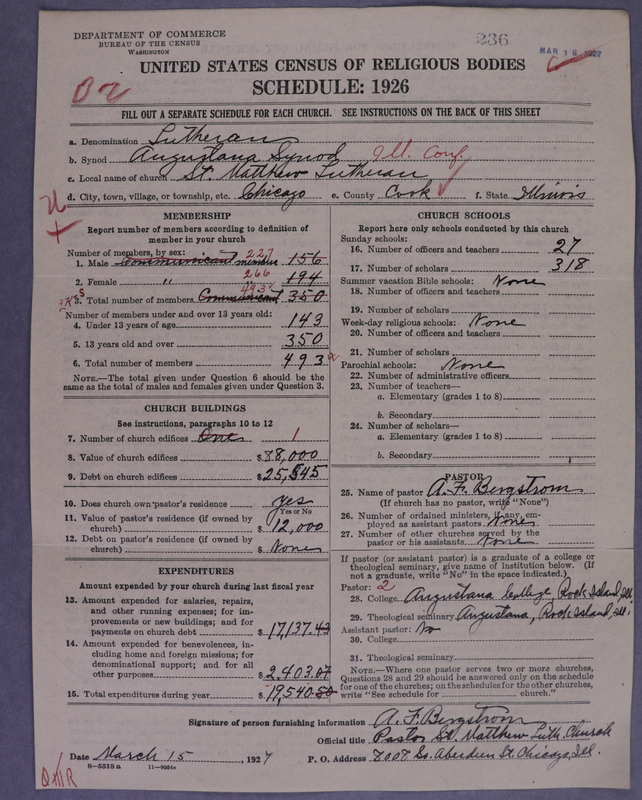 DEPARTMENT OF COMMERCE
BUREAU OF THE CENSUS
WASHINGTON
236
MAR 18 1927
UNITED STATES CENSUS OF RELIGIOUS BODIES
SCHEDULE: 1926
FILL OUT A SEPARATE SCHEDULE FOR EACH CHURCH. SEE INSTRUCTIONS ON THE BACK OF THIS SHEET
a. Denomination Lutheran
b. Synod Augustana Synod Ill. Conf.
c. Local name of church St. Matthew Lutheran
d. City, town, village, or township, etc. Chicago e. County Cook f. State Illinois
MEMBERSHIP
Report number of members according to definition of
member in your church
Number of members, by sex: 227
1. Male Communicant members 156
266
2. Female " 194
493
3. Total number of members Communicant 350
Number of members under and over 13 years old:
4. Under 13 years of age 143
5. 13 years old and over 350
6. Total number of members 493
NOTE.—The total given under Question 6 should be the
same as the total of males and females given under Question 3.
CHURCH BUILDINGS
See instructions, paragraphs 10 to 12
7. Number of church edifices One 1
8. Value of church edifices $38,000
9. Debt on church edifices $25,545
10. Does church own pastor's residence yes
Yes or No
11. Value of pastor's residence (if owned by
church) $12,000
12. Debt on pastor's residence (if owned by
church) $ None
EXPENDITURES
Amount expended by your church during last fiscal year
13. Amount expended for salaries, repairs,
and other running expenses; for im-
provements or new buildings; and for
payments on church debt $17,137.43
14. Amount expended for benevolences, in-
cluding home and foreign missions; for
denominational support; and for all
other purposes $2,403.07
15. Total expenditures during year $19,540.50
CHURCH SCHOOLS
Report here only schools conducted by this church
Sunday schools:
16. Number of officers and teachers 27
17. Number of scholars 318
Summer vacation Bible schools: None
18. Number of officers and teachers
19. Number of scholars
Week-day religious schools: None
20. Number of officers and teachers
21. Number of scholars
Parochial schools: None
22. Number of administrative officers
23. Number of teachers—
a. Elementary (grades 1 to 8)
b. Secondary
24. Number of scholars—
a. Elementary (grades 1 to 8)
b. Secondary
PASTOR
25. Name of pastor A. F. Bergstrom
(If church has no pastor, write "None")
26. Number of ordained ministers, if any, em-
ployed as assistant pastors None
27. Number of other churches served by the
pastor or his assistants None
If pastor (or assistant pastor) is a graduate of a college or
theological seminary, give name of institution below. (If
not a graduate, write "No" in the space indicated.)
Pastor: 2
28. College Augustana College, Rock Island, Ill.
29. Theological seminary Augustana, Rock Island, Ill.
Assistant pastor: No
30. College
31. Theological seminary
NOTE.—Where one pastor serves two or more churches,
Questions 28 and 29 should be answered only on the schedule
for one of the churches; on the schedules for the other churches,
write "See schedule for church."
Signature of person furnishing information A. F. Bergstrom
Official title Pastor St. Matthew Luth. Church
Date March 15, 1927 P. O. Address 8008 So. Aberdeen St. Chicago, Ill.
8-5518a 11-9264